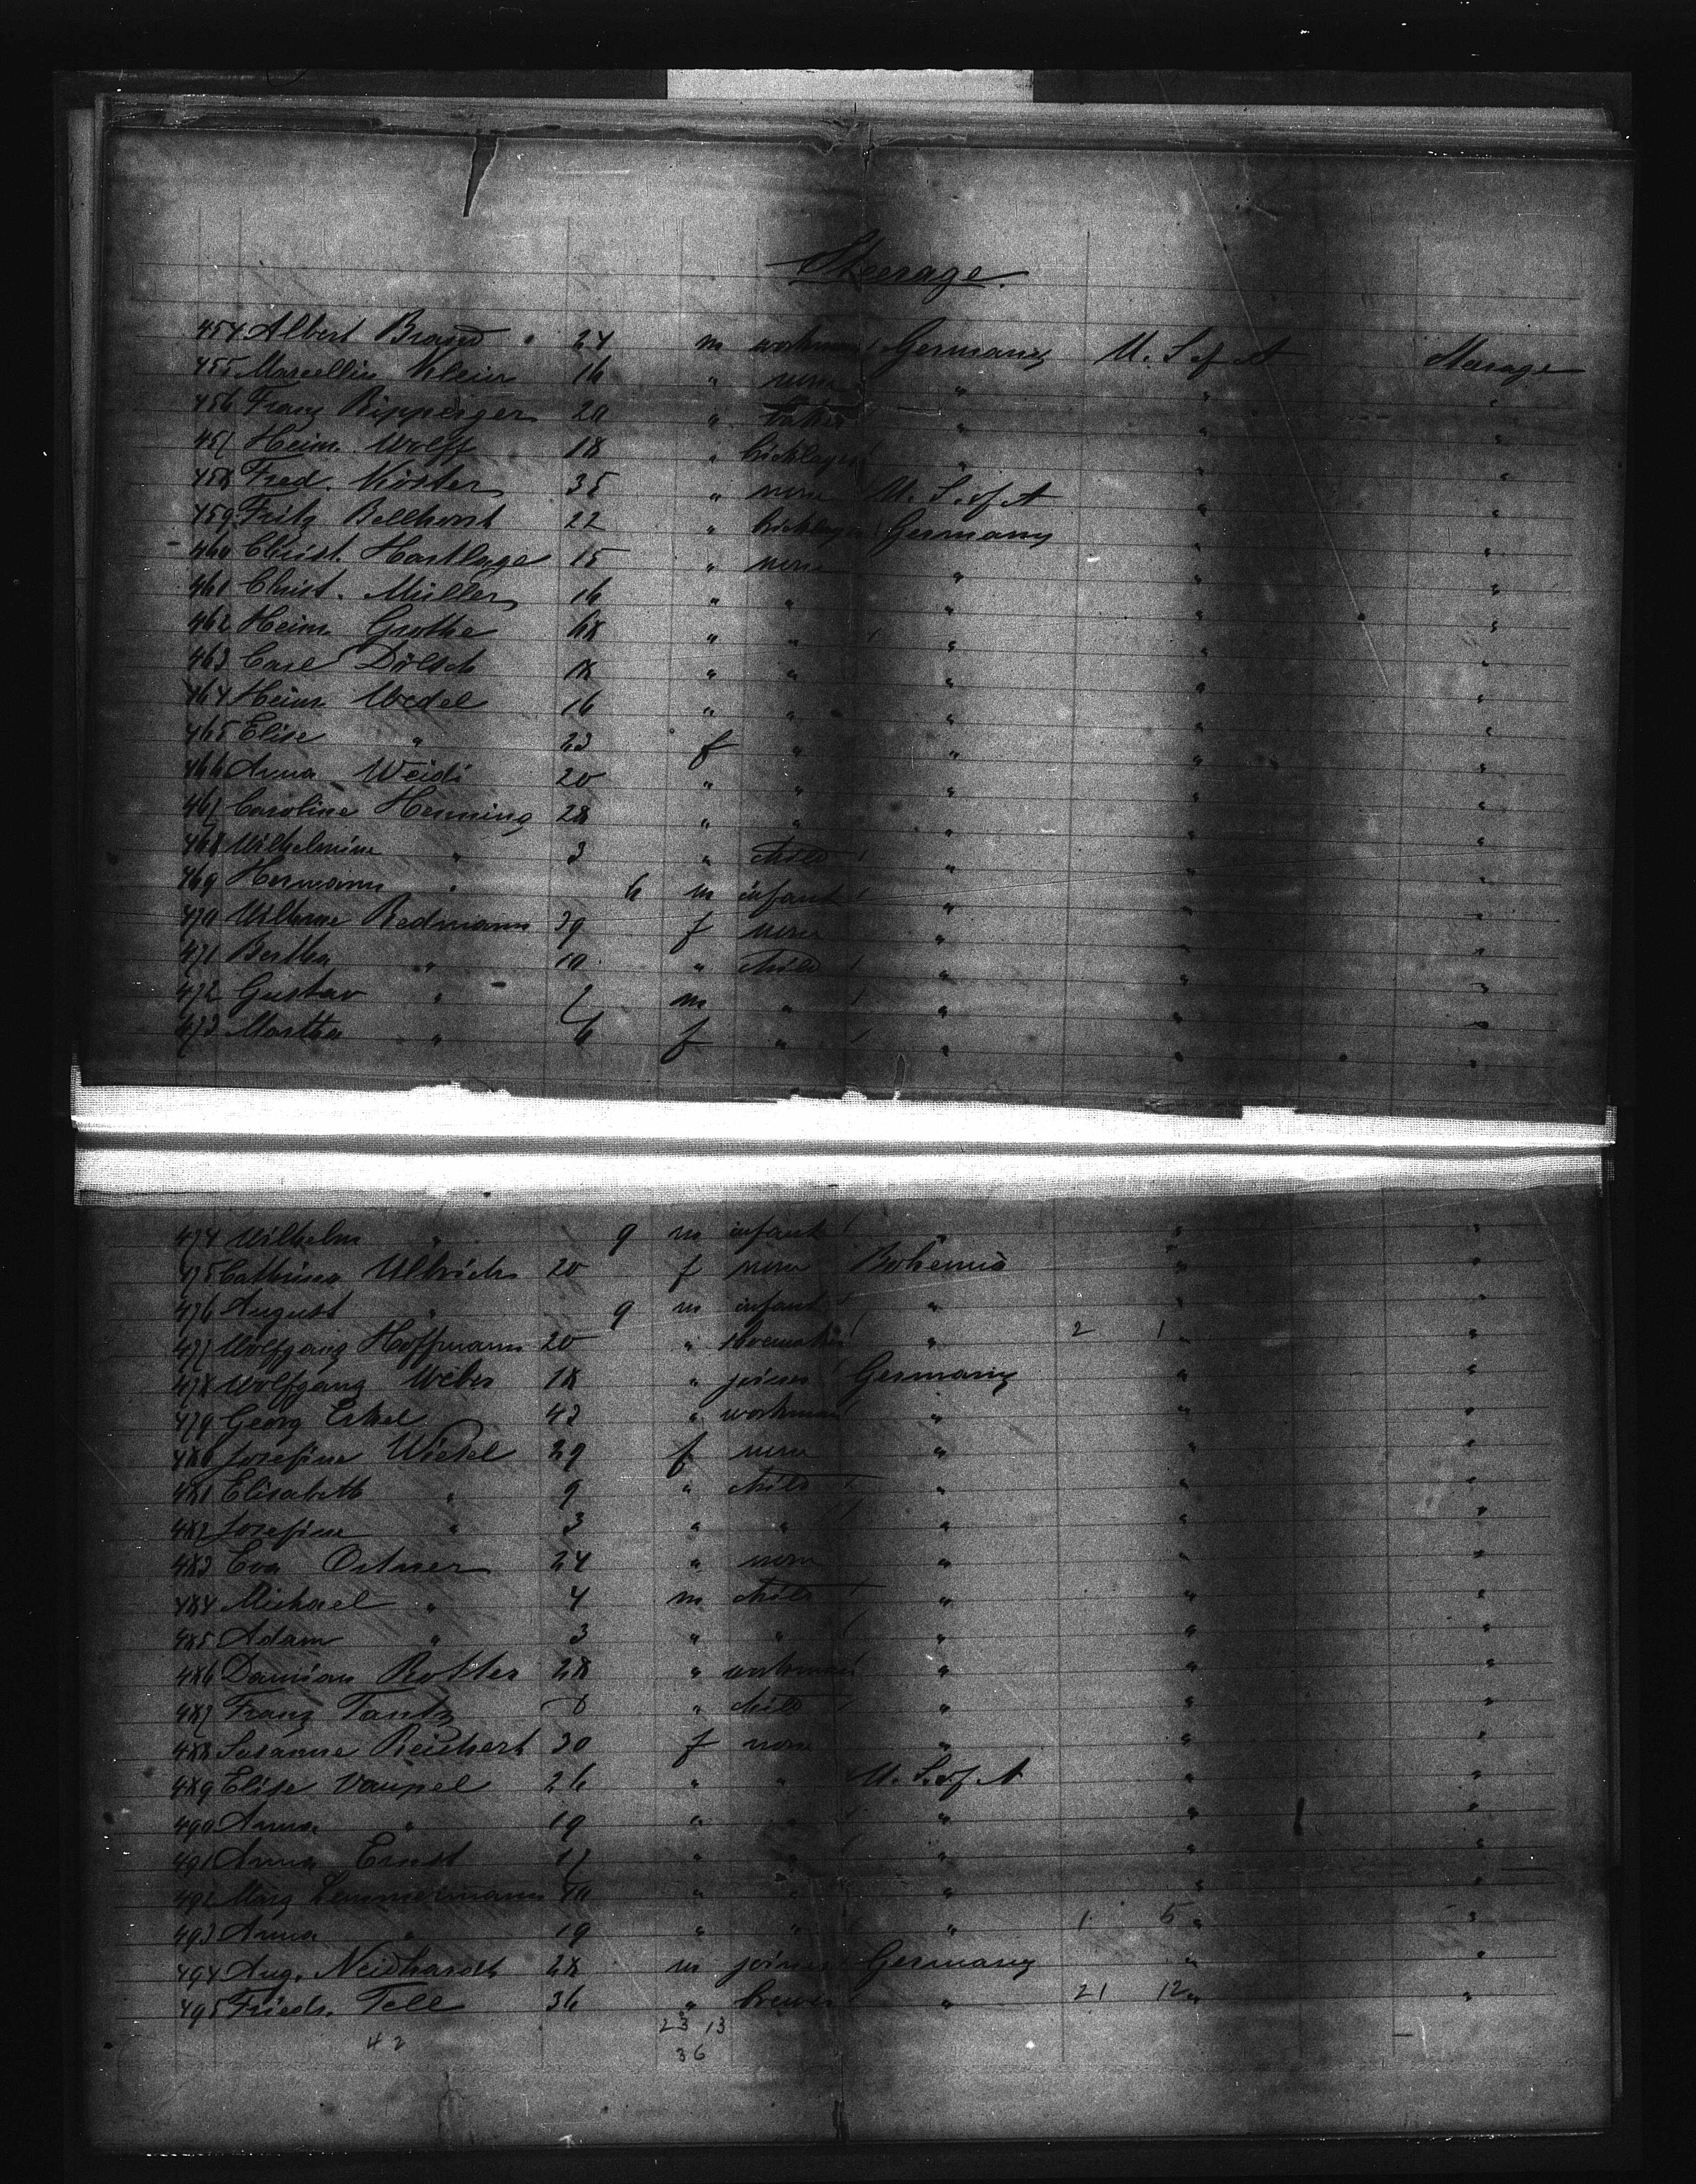 Steerage.
454 Albert Brand 24 m workman Germany U. S. of A Steerage
455 Marcellin Klein 16 " none " " "
456 Franz Ripperger 20 " " " "
457 Heinr. Wolff 18 " bricklayer " " "
458 Fred. Köster 35 " none U. S. of A " "
459 Fritz Bellhorst 22 " bricklayer Germany " "
460 Christ. Hartlage 15 " none " " "
461 Christ. Müller 16 " " " " "
462 Heinr. Grothe 68 " " " " "
463 Carl Dölsch 18 " " " " "
464 Heinr. Wedel 16 " " " " "
465 Elise " 23 f " " " "
466 Anna Weidi 20 " " " " "
467 Caroline Henning 28 " " " " "
468 Wilhelmine " 3 " child " " "
469 Hermann " 6 m infant " " "
470 Wilhme Redmann 39 f none " " "
471 Bertha " 10 " child " " "
472 Gustav " 7 m " " " "
473 Martha " 6 f " " " "
474 Wilhelm " 9 m infant " " "
475 Cathrina Ullrich 20 f none Bohemia " "
476 August " 9 m infant " " "
477 Wolfgang Hoffmann 20 " shoemaker " 2 1 " "
478 Wolfgang Weber 18 " joiner Germany " "
479 Georg Erkel 42 " workman " " "
480 Josefine Wiesel 29 f none " " "
481 Elisabeth " 9 " child " " "
482 Josefine " 3 " " " " "
483 Eva Ortner 24 " none " " "
484 Michael " 4 m child " " "
485 Adam " 3 " " " " "
486 Damian Rotter 28 " workman " " "
487 Franz Tantz 8 " child " " "
488 Susanne Reichert 30 f none " " "
489 Elise Vaupel 26 " " U. S. of A " "
490 Anna " 19 " " " " "
491 Anna Ernst 17 " " " " "
492 Marg Lemmermann 40 " " " " "
493 Anna " 19 " " " 1 5 " "
494 Aug. Neidhardt 28 m joiner Germany " "
495 Friedr. Tell 36 " brewer " 21 12 " "
42 23 13
36